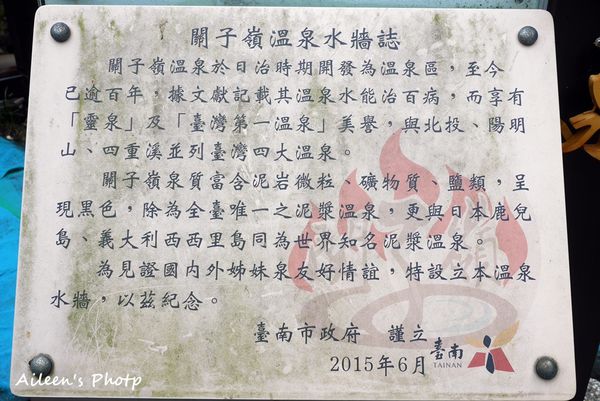 關子嶺溫泉水牆誌
關子嶺溫泉於日治時期開發為溫泉區，至今
已逾百年，據文獻記載其溫泉水能治百病，而享有
「靈泉」及「臺灣第一溫泉」美譽，與北投、陽明
山、四重溪並列臺灣四大溫泉。
關子嶺泉質富含泥岩微粒、礦物質、鹽類，呈
現黑色，除為全臺唯一之泥漿溫泉，更與日本鹿兒
島、義大利西西里島同為世界知名泥漿溫泉。
為見證國內外姊妹泉友好情誼，特設立本溫泉
水牆，以茲紀念。
臺南市政府 謹立
2015年6月
臺南
TAINAN
Aileen's Photp